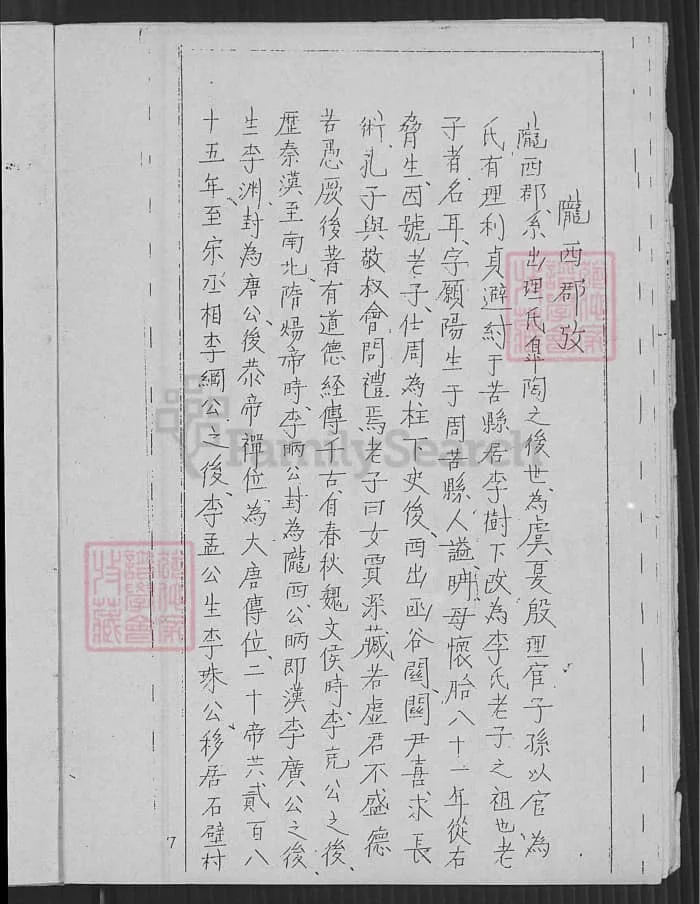 隴西郡攷
隴西郡、系出理氏皐陶之後世、為虞夏殷理官子孫以官、為
氏有理利貞避紂于苦縣居李樹下改為李氏老子之祖也、老
子者、名耳、字願陽生于周苦縣人謚聃、母懷胎八十一年從右
脅生、因號老子、仕周為柱下史後、西出函谷關、關尹喜求長
術、孔子與敬叔會問禮焉老子曰女賈深藏若虛君不盛德
若愚厥後著有道德經傳千古、自春秋魏文侯時、李克公之後、
歷秦漢至南北、隋煬帝時、李昞公封為隴西公昞即漢李廣公之後、
生李淵、封為唐公後恭帝禪位、為大唐傳位、二十帝共貳百八
十五年、至宋丞相李綱公之後、李孟公生李珠公、移居石壁村
7
FamilySearch